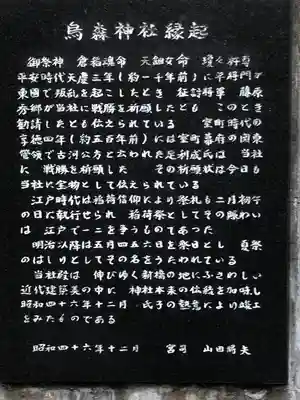 烏森神社縁起
御祭神　倉稲魂命　天鈿女命　瓊々杵尊
平安時代天慶三年（約一千年前）に平将門が
東國で叛乱を起こしたとき　征討将軍　藤原
秀郷が当社に戦勝を祈願したとも　このとき
勧請したとも伝えられている　　室町時代の
享徳四年（約五百年前）には室町幕府の関東
管領で古河公方と云われた足利成氏は　当社
に　戦勝を祈願した　　その祈願状は今日も
当社に宝物として伝えられている
江戸時代は稲荷信仰により祭礼も二月初午
の日に執行せられ　稲荷祭としてその賑わい
は　江戸で一二を争うものであつた
明治以降は五月四五六日を祭日とし　夏祭
のはしりとしてその名をうたわれている
当社殿は　伸びゆく新橋の地にふさわしい
近代建築美の中に　神社本来の伝統を加味し
昭和四十六年十二月　氏子の熱意により竣工
をみたものである
昭和四十六年十二月　　宮司　山田將夫